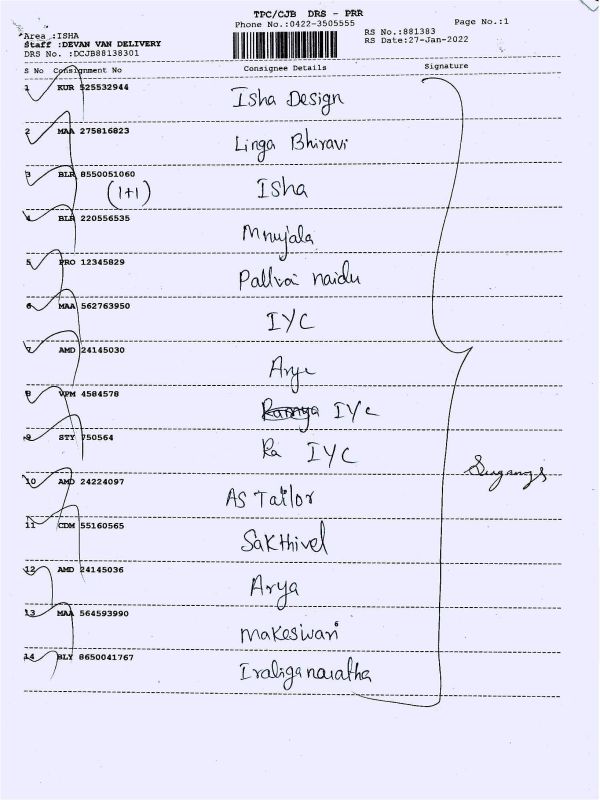 TPC/CJB DRS - PRR
Phone No.:0422-3505555
Page No.:1
Area :ISHA
Staff :DEVAN VAN DELIVERY
DRS No. :DCJB88138301
RS No.:881383
RS Date:27-Jan-2022
S No Consignment No Consignee Details Signature
1 KUR 525532944 Isha Design
2 MAA 275816823 Linga Bhiravi
3 BLR 8550051060 (1+1) Isha
4 BLR 220556535 Mnujala
5 PRO 12345829 Pallvai naidu
6 MAA 562763950 IYC
7 AMD 24145030 Arye
8 VPM 4584578 IYC
9 STY 750564 Ra IYC
10 AMD 24224097 AS Tailor
11 CDM 55160565 Sakthivel
12 AMD 24145036 Arya
13 MAA 564593990 Makeswari
14 BLY 8650041767